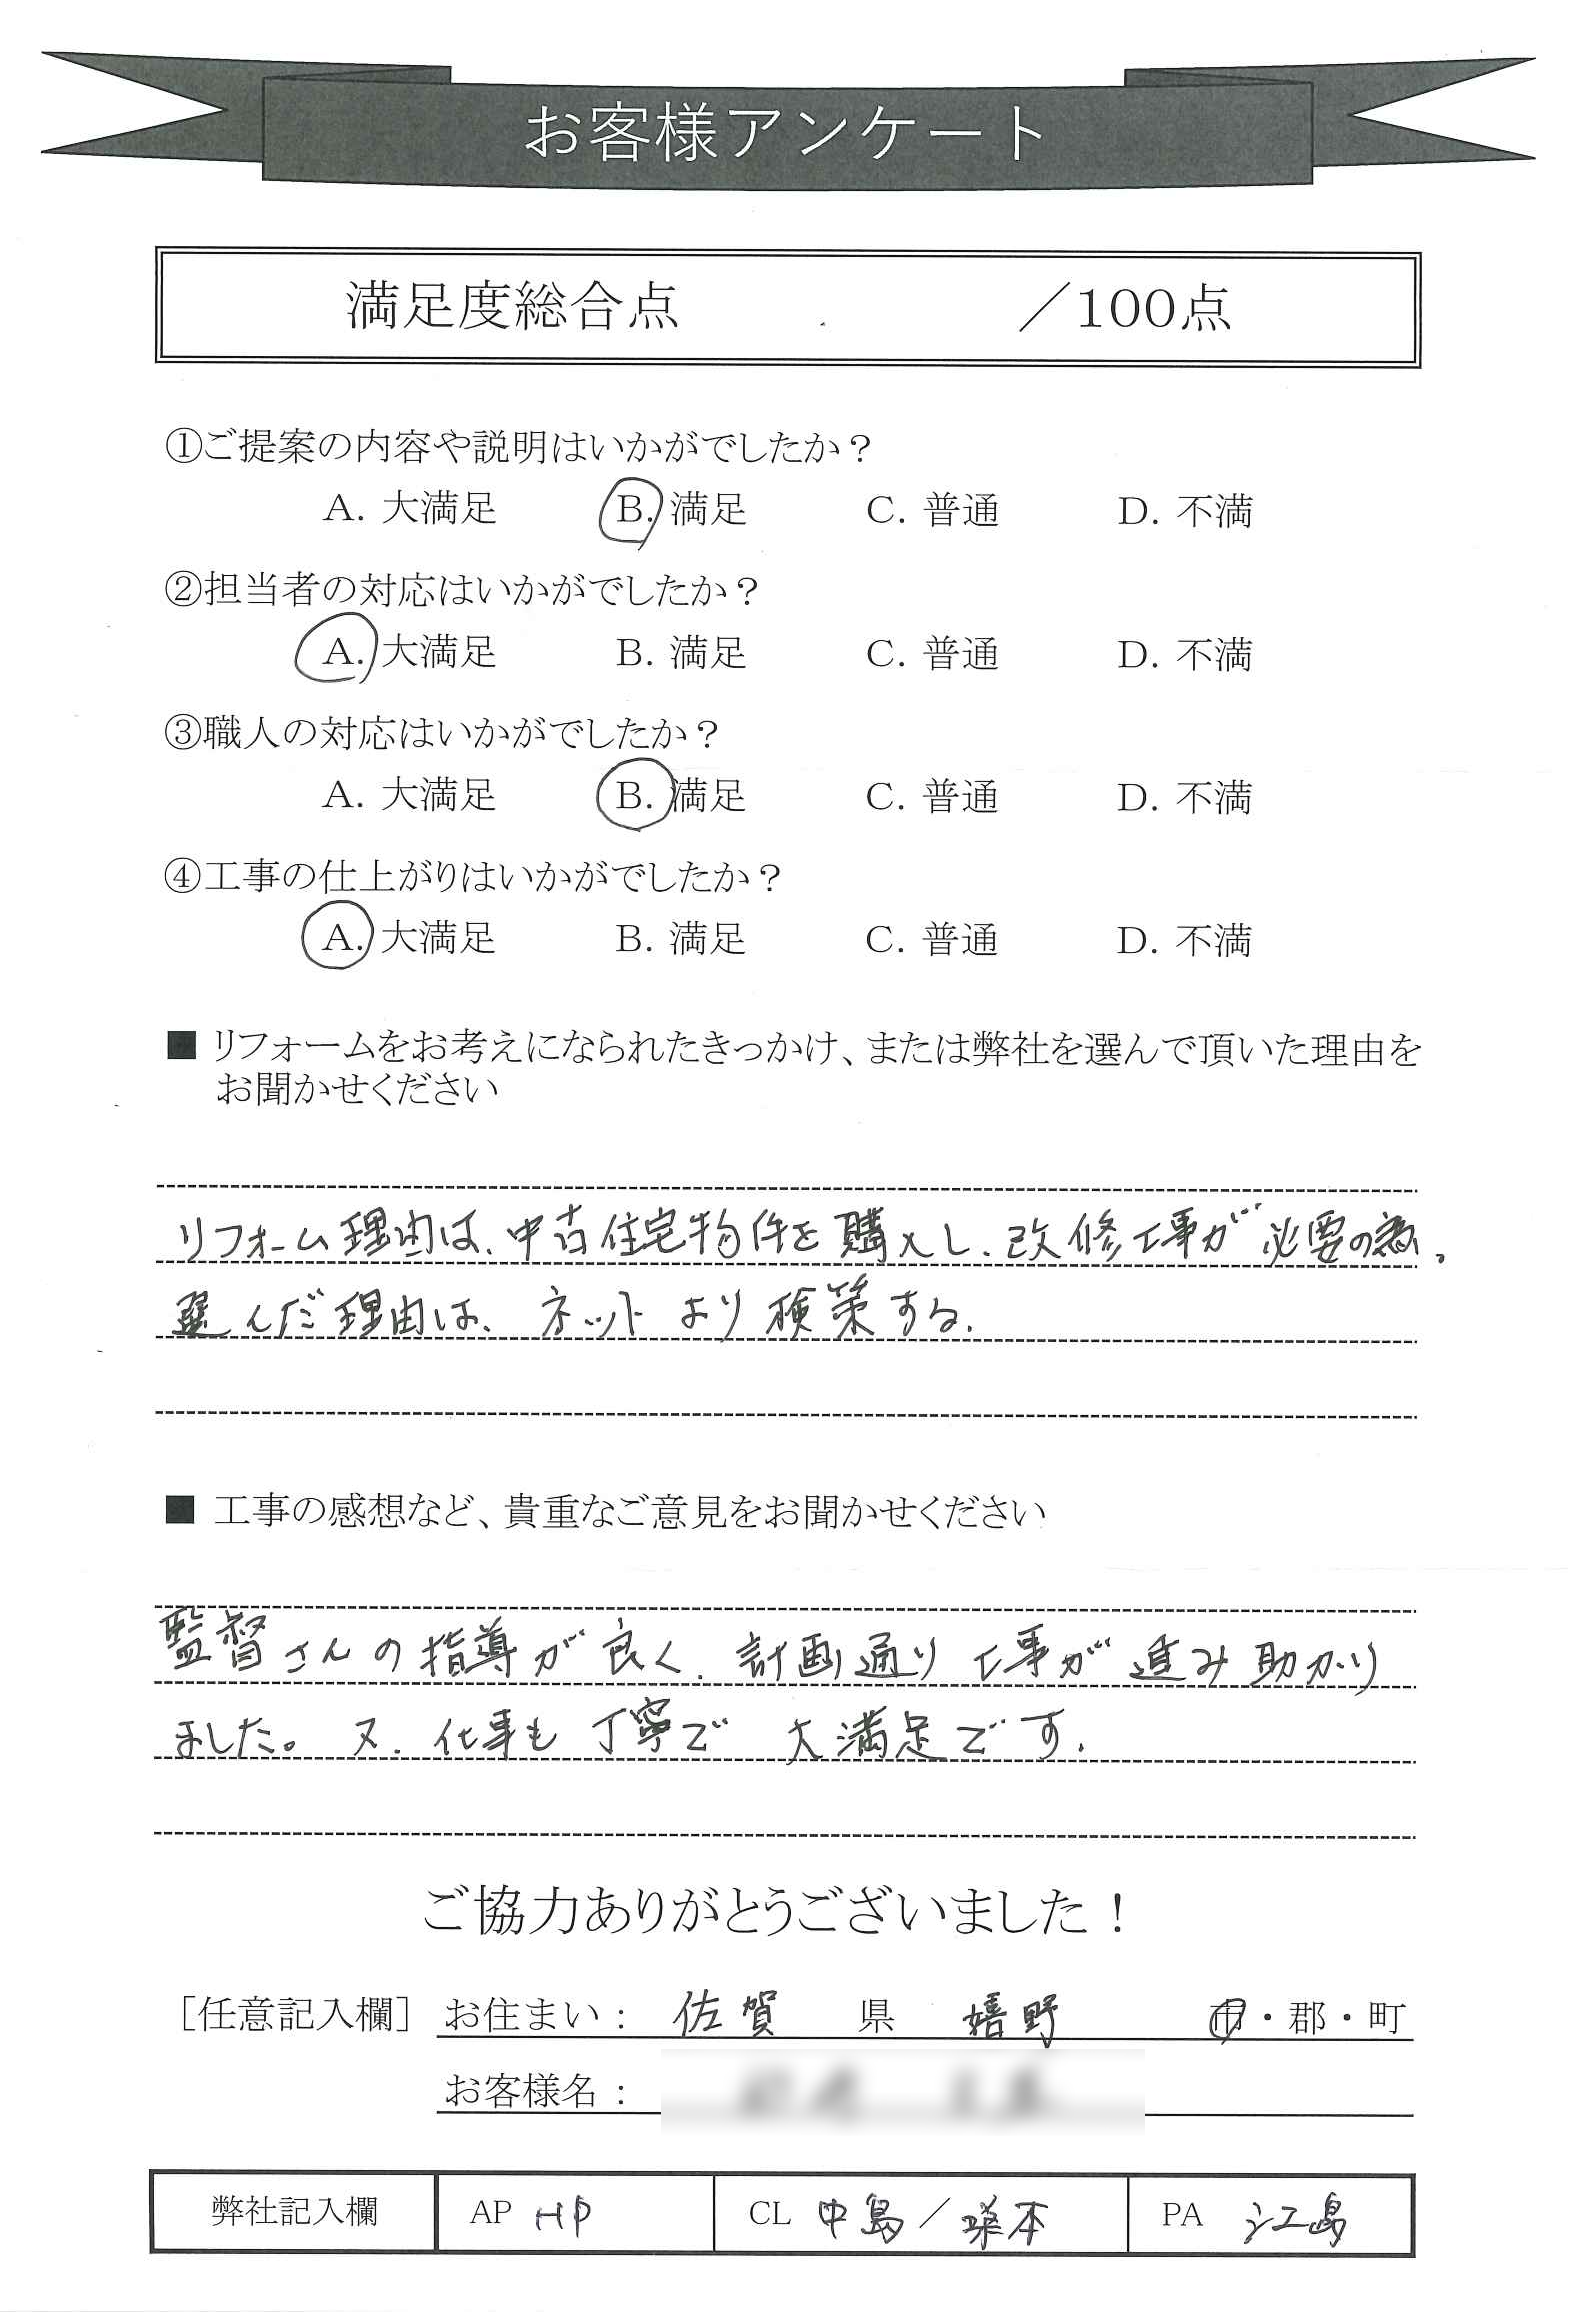 お客様アンケート
満足度総合点 ／100点
①ご提案の内容や説明はいかがでしたか？
A. 大満足 B. 満足 C. 普通 D. 不満
②担当者の対応はいかがでしたか？
A. 大満足 B. 満足 C. 普通 D. 不満
③職人の対応はいかがでしたか？
A. 大満足 B. 満足 C. 普通 D. 不満
④工事の仕上がりはいかがでしたか？
A. 大満足 B. 満足 C. 普通 D. 不満
■ リフォームをお考えになられたきっかけ、または弊社を選んで頂いた理由を
お聞かせください
リフォーム理由は、中古住宅物件を購入し、改修工事が必要の為。
選んだ理由は、ネットより検策する。
■ 工事の感想など、貴重なご意見をお聞かせください
監督さんの指導が良く、計画通り工事が進み助かり
ました。又、仕事も丁寧で 大満足です。
ご協力ありがとうございました！
［任意記入欄］ お住まい： 佐賀 県 嬉野 市・郡・町
お客様名：
弊社記入欄 AP HP CL 中島／本 PA 江島